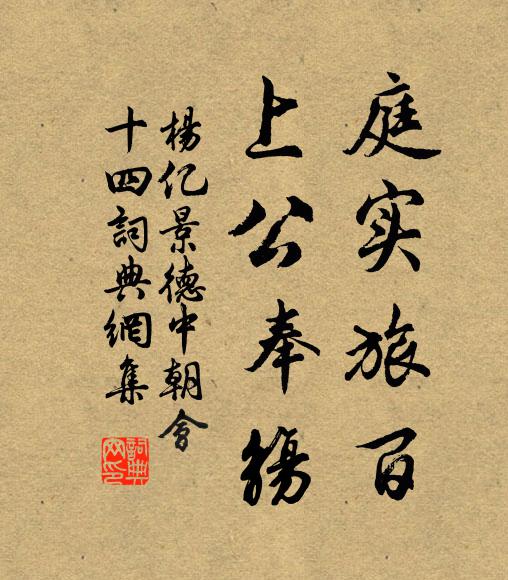 庭实旅百
上公奉觞
杨亿景德中朝会
十四词典網集
詞典网印